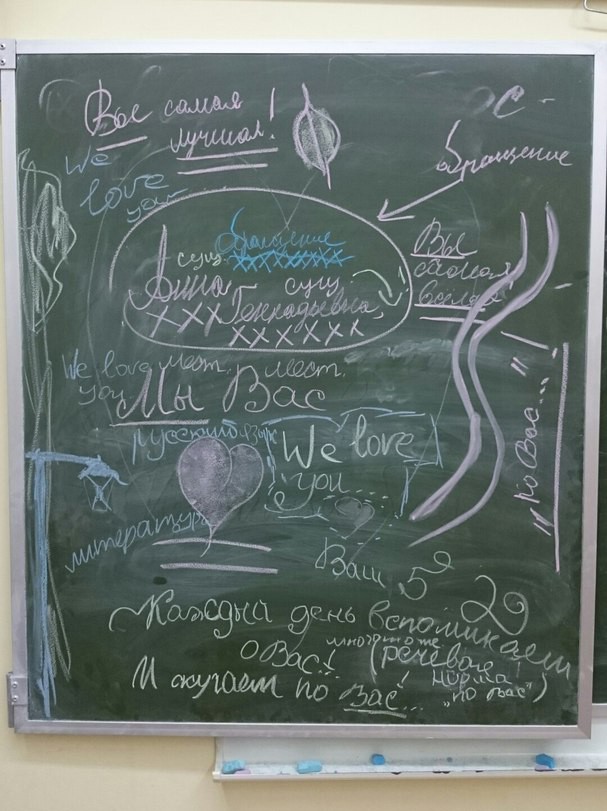 Вы самая
лучшая!
We
love
you
С -
обращение
обращение
сущ.
сущ.
Анна Геннадьевна,
Вы
самая
We love
you
мест.
мест.
Мы Вас
русский язык
We love
you
литература
"по Вас..."
Ваш 5
29
Каждый день вспоминаем
о Вас!
многоточие
И скучаем по Вас...
(речевая
норма
"по Вас")